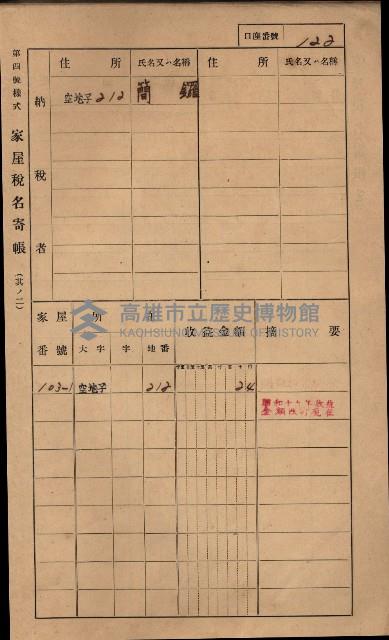 口座番號 122
第四號樣式 家屋稅名寄帳 (其ノ二)
納稅者
住所 氏名又ハ名稱 住所 氏名又ハ名稱
空地子212 簡
高雄市立歷史博物館
KAOHSIUNG MUSEUM OF HISTORY
家屋番號 家屋所在 收益金額 摘要
大字 字 地番
103-1 空地子 212 24
昭和十七年收益
金額改訂現在